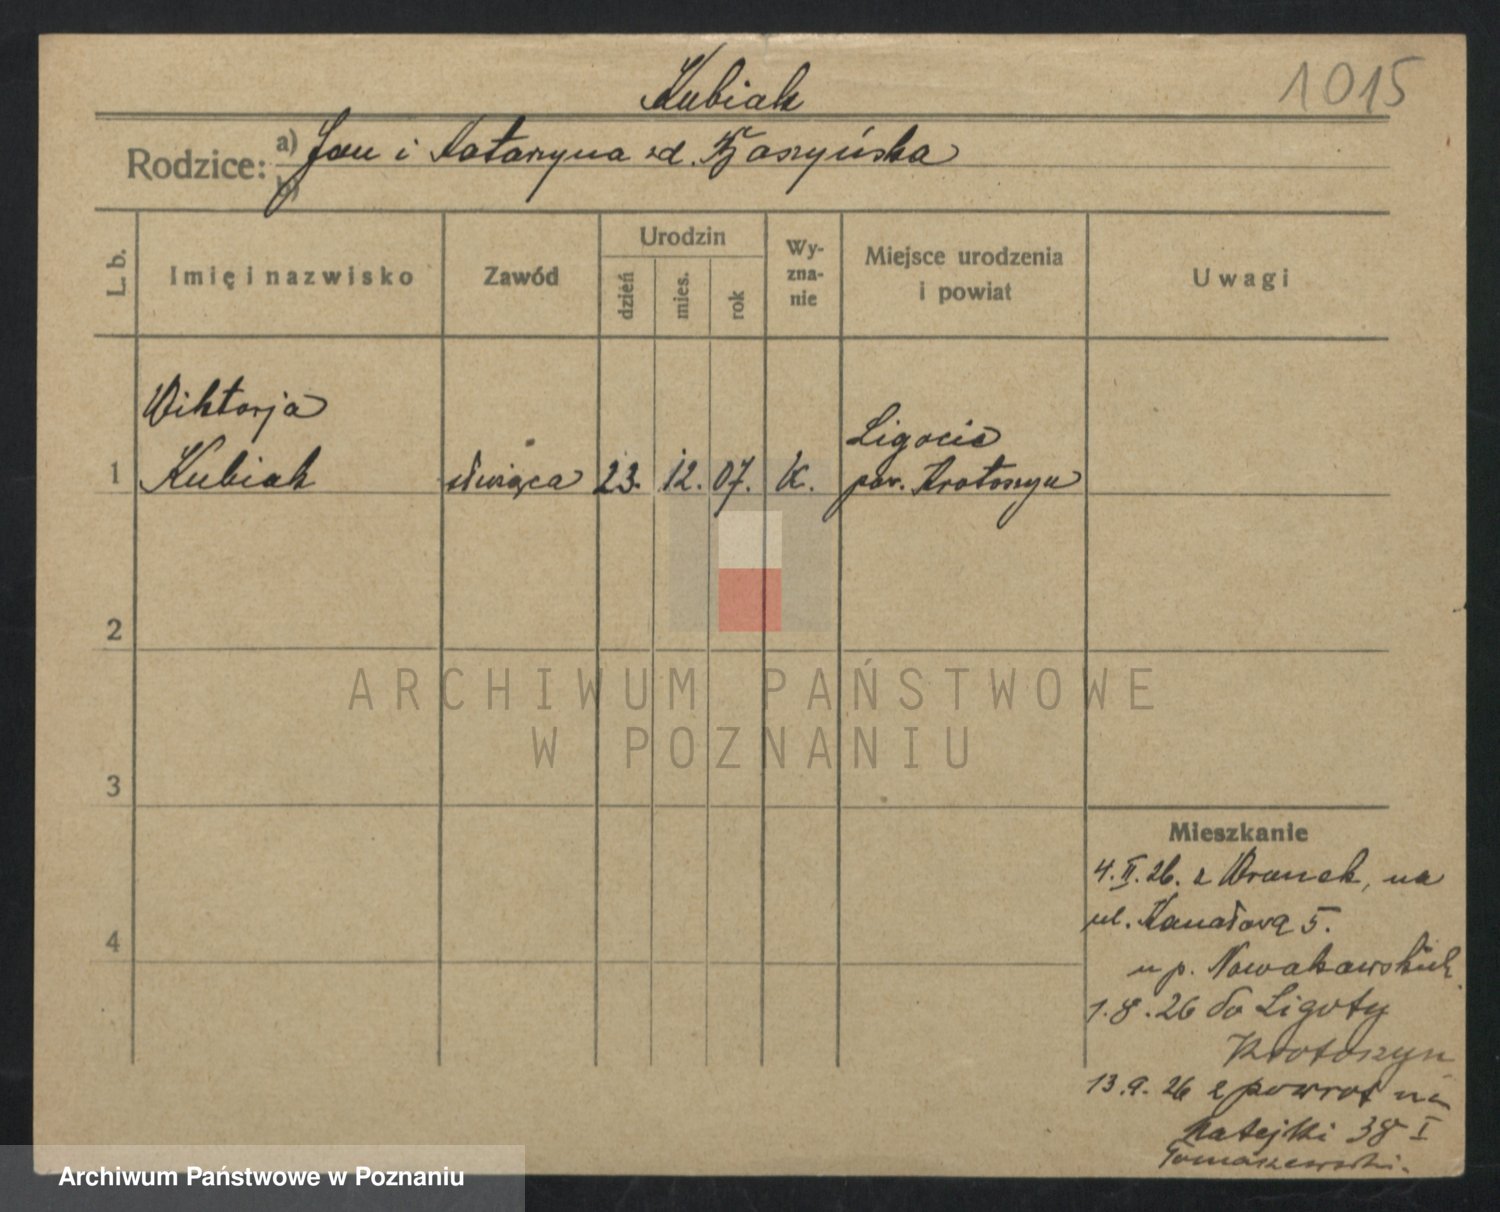 Kubiak
1015
Rodzice: a) Jan i Katarzyna zd.
b)
L. b.
Imię i nazwisko
Zawód
Urodzin
dzień
mies.
rok
Wy-
zna-
nie
Miejsce urodzenia
i powiat
Uwagi
Wiktorja
Kubiak
1
służąca
23. 12. 07. K.
Ligocie
pow. Krotoszyn
2
3
4
Mieszkanie
4.II.26. z Wronek, na
ul. Kanałową 5.
u p. Nowakowskich
1.8.26 do Ligoty
Krotoszyn
13.9.26 z powrot na
Matejki 38 I
Tomaszewski.
ARCHIWUM PAŃSTWOWE
W POZNANIU
Archiwum Państwowe w Poznaniu